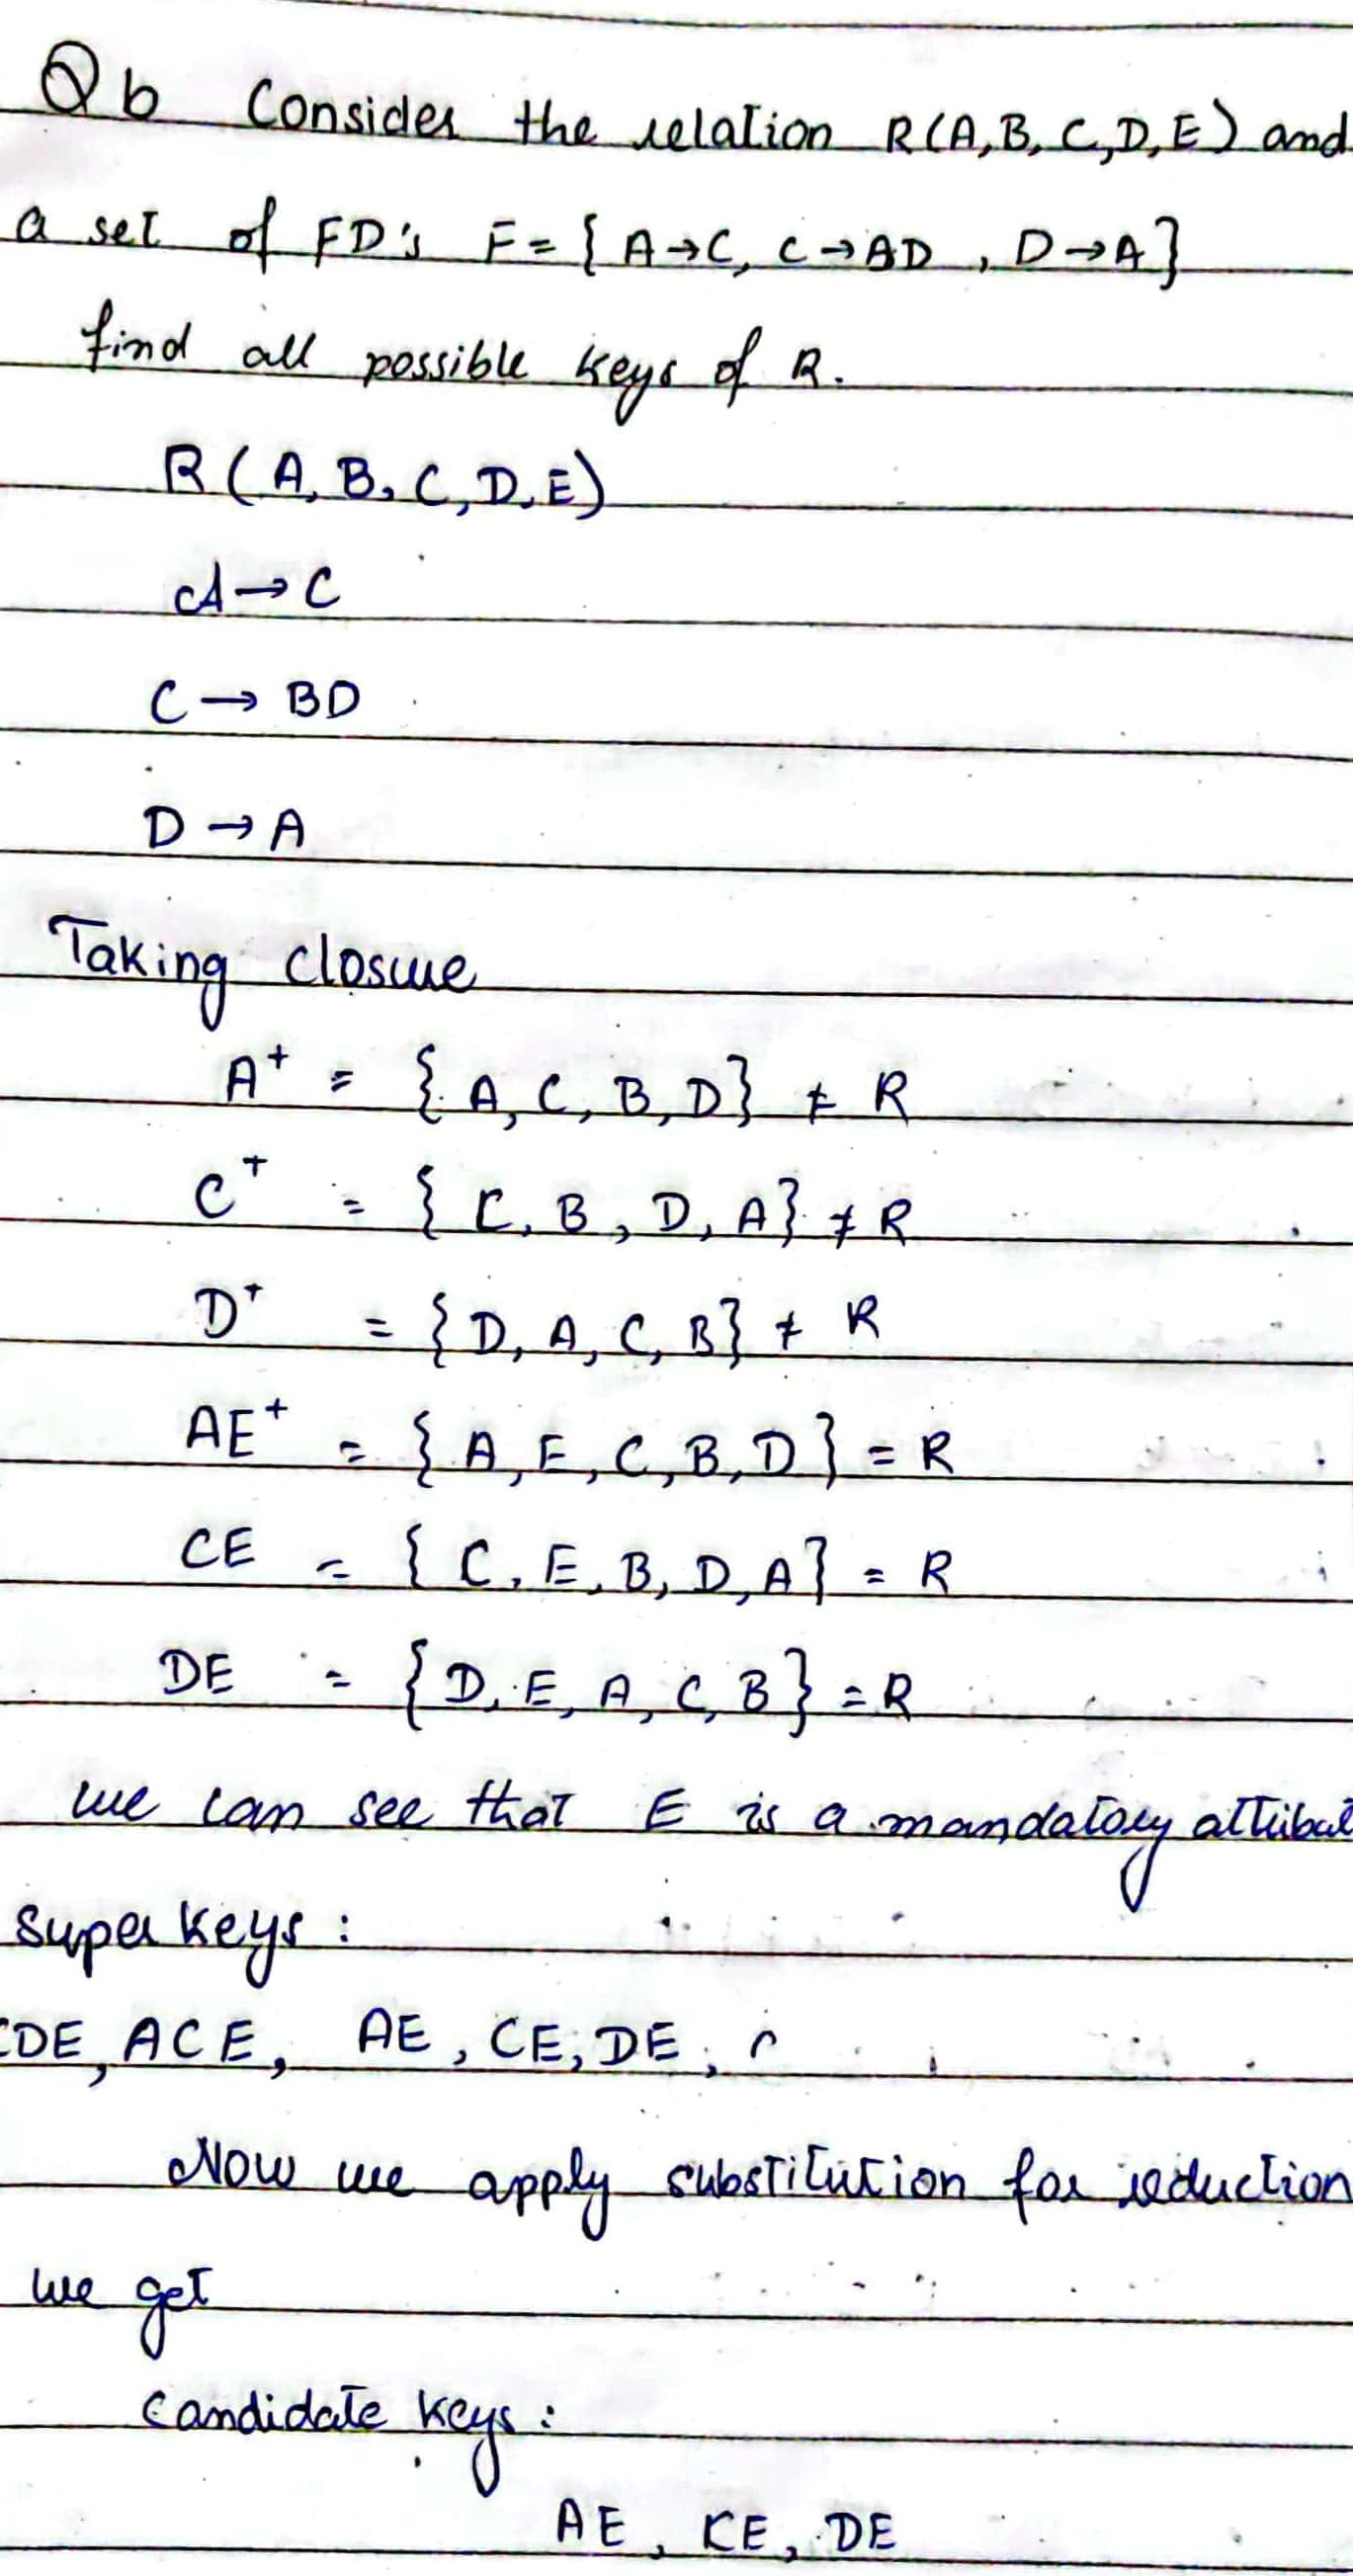 Qb Consider the relation R(A,B,C,D,E) and
a set of FD's F = { A→C, C→BD , D→A}
find all possible keys of R.
R (A, B, C, D, E)
A→C
C → BD
D → A
Taking closure
A⁺ = { A, C, B, D} ≠ R
C⁺ = { C, B, D, A} ≠ R
D⁺ = { D, A, C, B} ≠ R
AE⁺ = { A, E, C, B, D } = R
CE = { C, E, B, D, A} = R
DE = { D, E, A, C, B } = R
we can see that E is a mandatory
Super keys :
CDE, ACE, AE, CE, DE,
Now we apply substitution for reduction
we get
Candidate keys :
AE, CE, DE